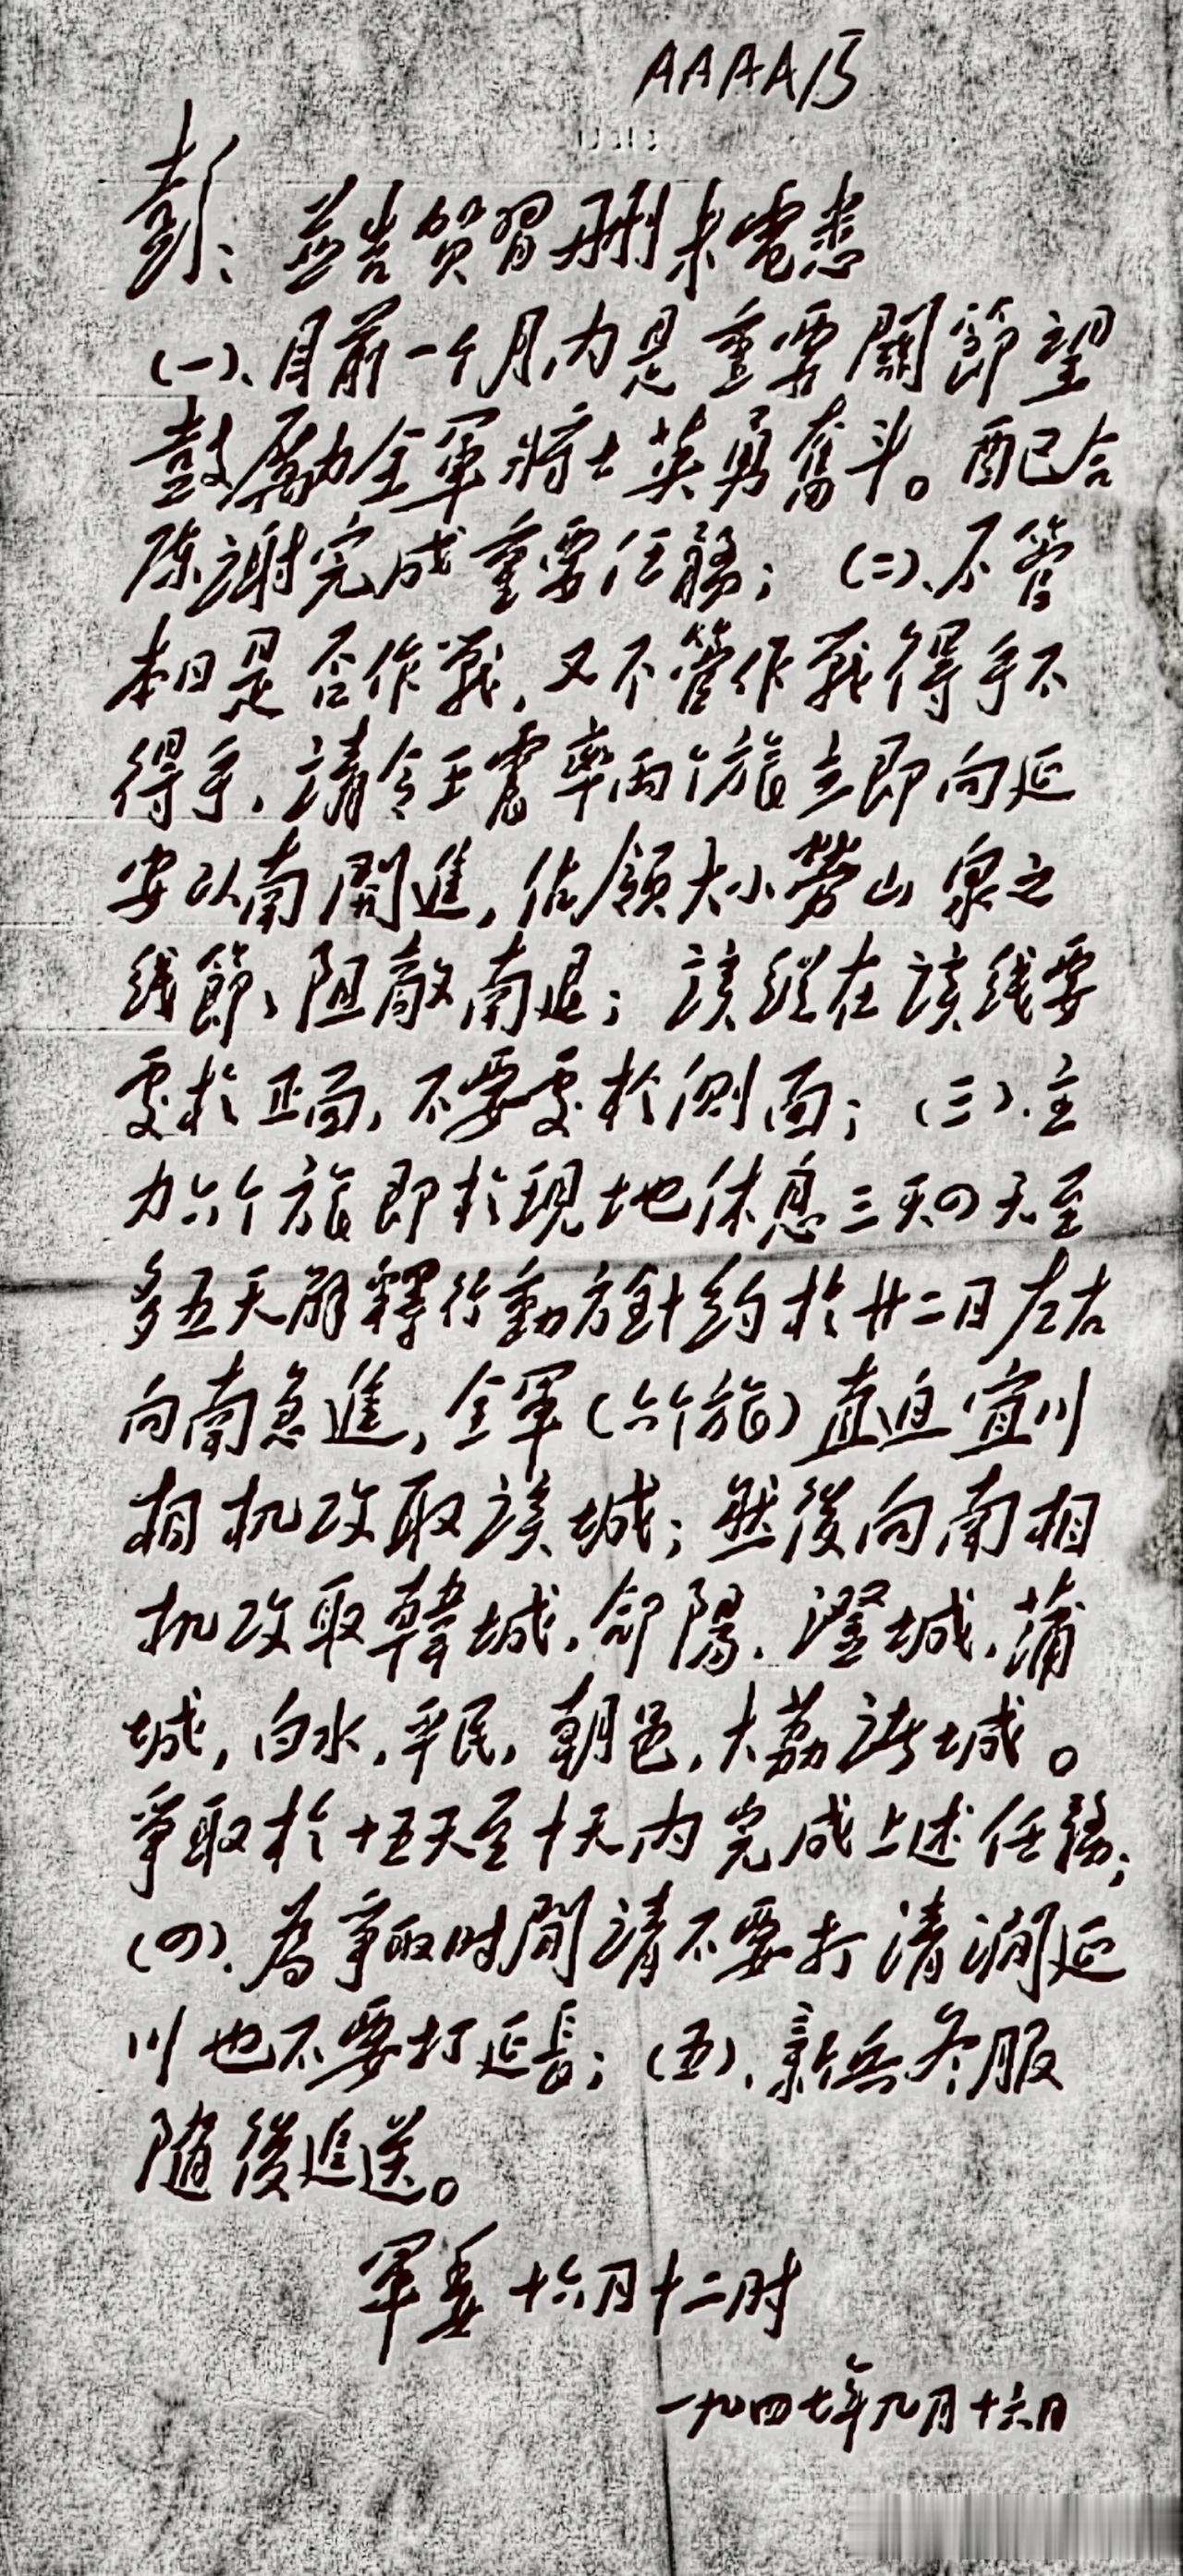 AAAA
彭：並告賀習刪未電悉
(一)、目前一个月内是重要關節望
鼓勵全軍將士英勇奮斗。配合
陈謝完成重要任務；(二)、不管
本日是否作戰，又不管作戰得手不
得手，請令王震率两个旅立即向延
安以南開進，佔領大小劳山泉之
线節、阻敵南退；該縱在該线要
處於正面，不要處於側面；(三)、主
力六个旅即於現地休息三天四天至
多五天解釋行動方針約於廿二日左右
向南急進，全軍(六个旅)直迫宜川
相机攻取該城；然後向南相
机攻取韓城、郃陽、澄城、蒲
城，白水，平民，朝邑，大荔諸城。
爭取於十五天至廿天内完成上述任務；
(四)、為爭取时間請不要打清澗延
川也不要打延長；(五)、新兵冬服
随後追送。
軍委十六日十二时
一九四七年九月十六日